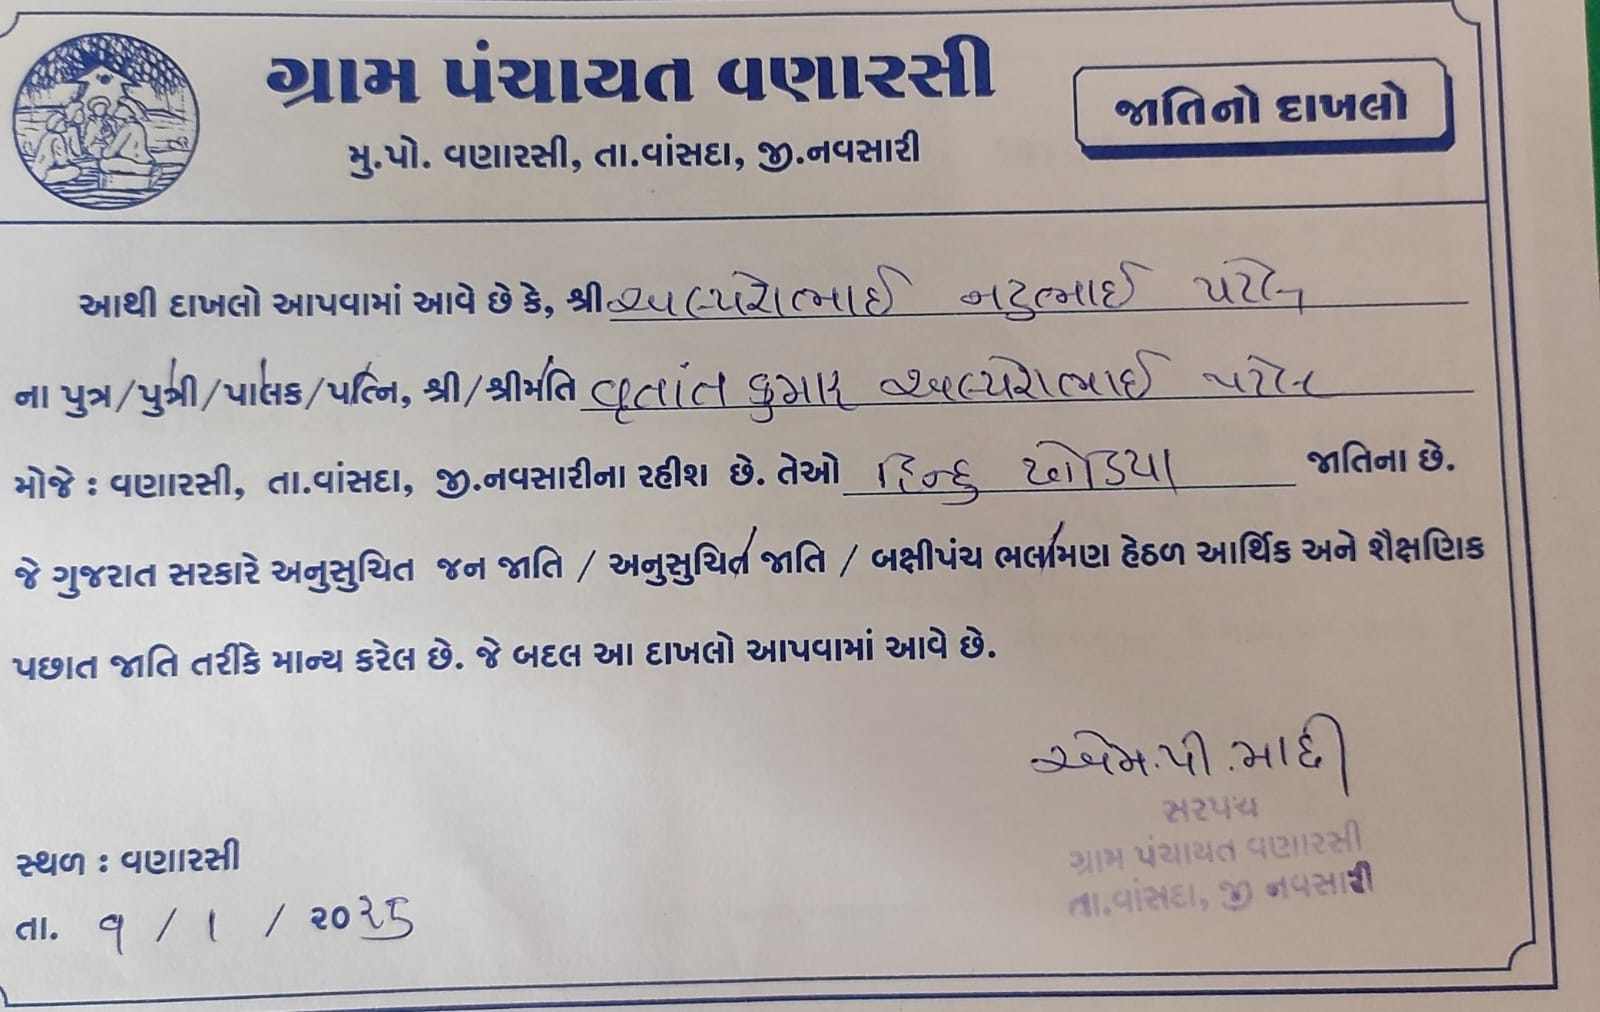 ગ્રામ પંચાયત વણારસી
મુ.પો. વણારસી, તા.વાંસદા, જી.નવસારી
જાતિનો દાખલો
આથી દાખલો આપવામાં આવે છે કે, શ્રી અલ્પેશભાઈ નટુભાઈ પટેલ
ના પુત્ર/પુત્રી/પાલક/પત્નિ, શ્રી/શ્રીમતિ વૃતાંતકુમાર અલ્પેશભાઈ પટેલ
મોજે : વણારસી, તા.વાંસદા, જી.નવસારીના રહીશ છે. તેઓ હિન્દુ ધોડિયા જાતિના છે.
જે ગુજરાત સરકારે અનુસુચિત જન જાતિ / અનુસુચિત જાતિ / બક્ષીપંચ ભલામણ હેઠળ આર્થિક અને શૈક્ષણિક
પછાત જાતિ તરીકે માન્ય કરેલ છે. જે બદલ આ દાખલો આપવામાં આવે છે.
એમ.પી.
સરપંચ
ગ્રામ પંચાયત વણારસી
તા.વાંસદા, જી નવસારી
સ્થળ : વણારસી
તા. ૧ / ૧ /